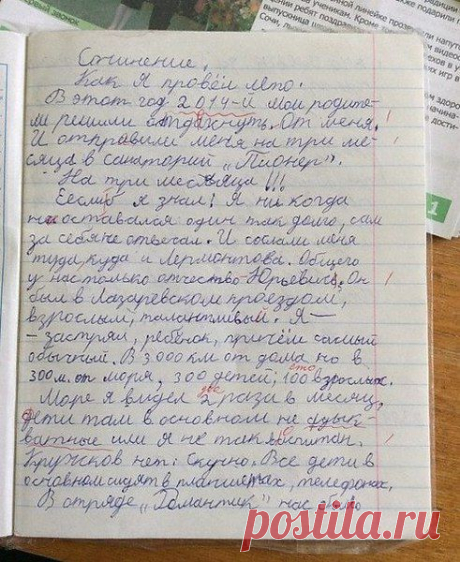 Сочинение.
Как я провёл лето.
В этот год 2014-й мои родите-
ли решили отдахнуть. От меня.
И отправили меня на три ме-
сяца в санаторий „Пионер".
На три месяца!!!
Еесли б я знал! Я ни когда
не оставался один так долго, сам
за себя не отвечал. И сослали меня
туда, куда и Лермонтова. Общего
у нас только отчество - Юрьевич. Он
был в Лазаревском проездом,
взрослый, талантливый. Я —
- застрял, ребёнок, причём самый
обычный. В 3000 км от дома но в
300 м. от моря, 300 детей, 100 взрослых.
сто
Море я видел 2 раза в месяц,
два
дети там в основном не
ватные или я не так воспитан.
Кружков нет. Скучно. Все дети в
основном сидят в планшетах, телефонах.
В отряде „Романтик" нас было
линейке прозвучали
выпускница
Сочи,
1
postila.ru